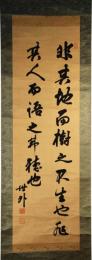 非其地而樹之不生也非
其人而語之弗聴也
世外